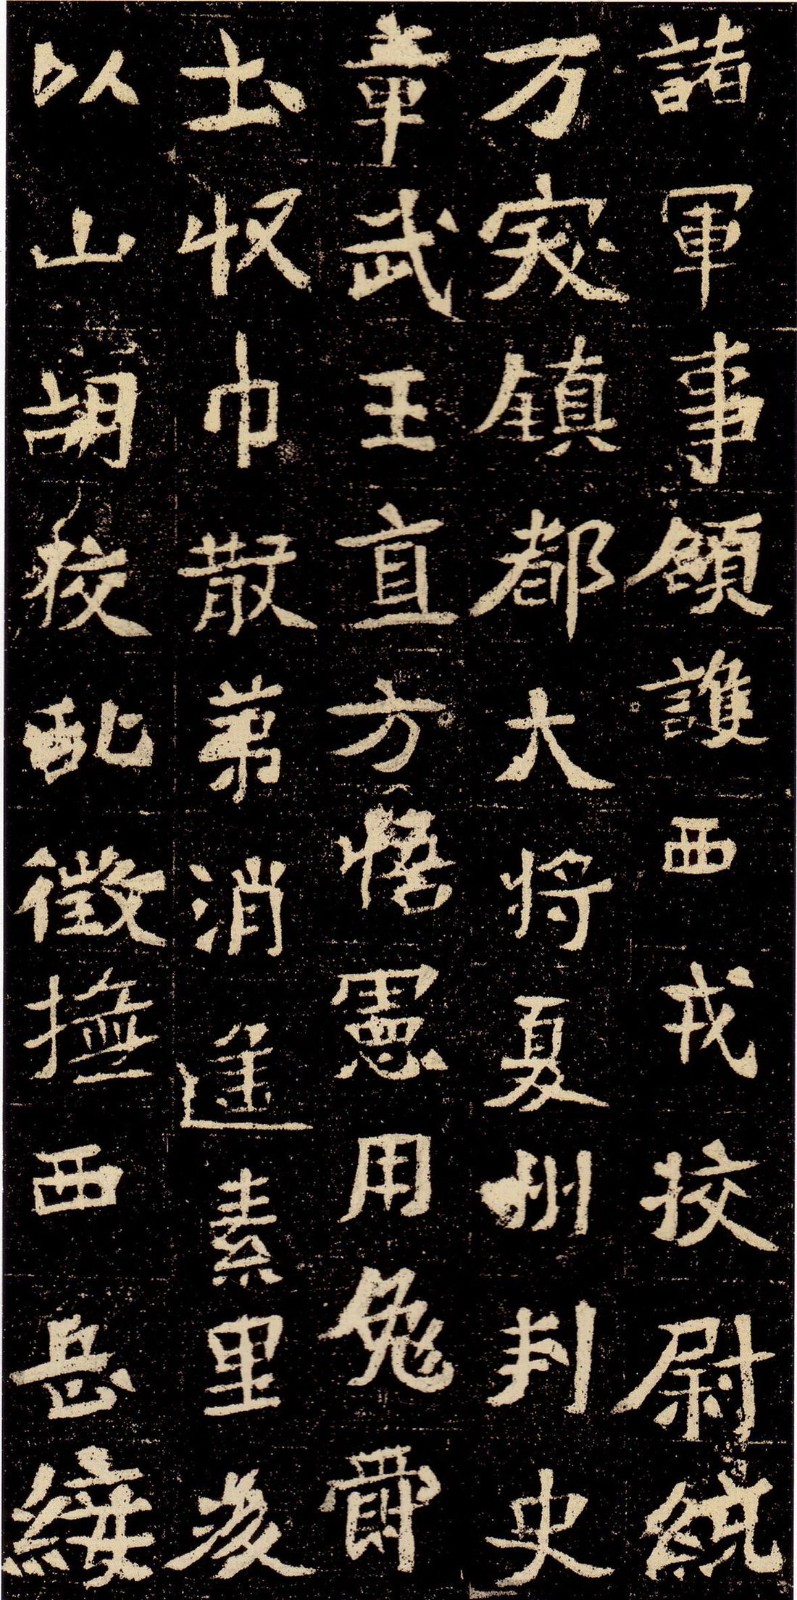 諸軍事領護西戎挍尉統
万突鎮都大将夏州刺史
章武王直方悟憲用免爵
土収巾散第消遥素里後
以山胡狡乱徵撫西岳綏